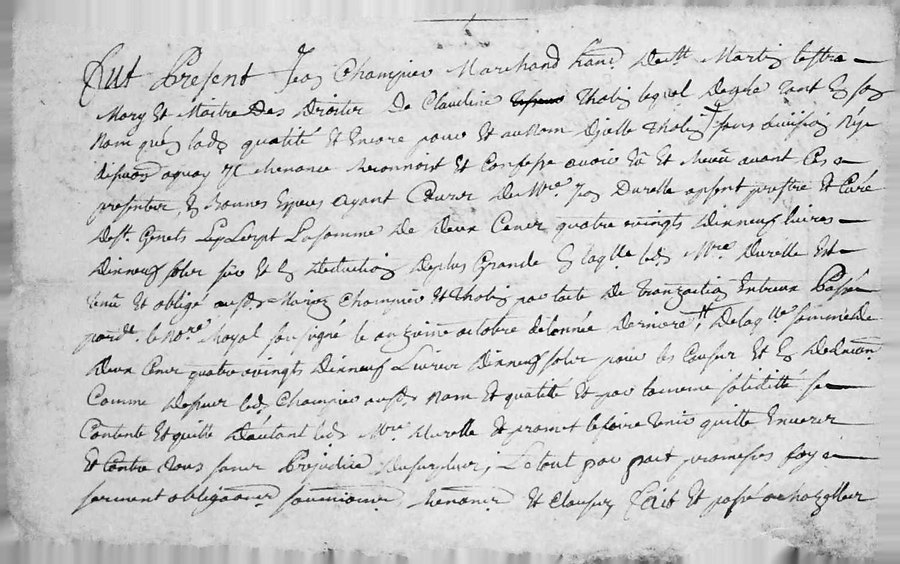 fut Present Jean Champier Marchand hand. De st Martin lestra
Mary Et Maitre Des Droiter De Claudine Tholin lequel De gré tant En son
Nom qu'en lad. qualité Et Encore pour Et au Nom D'jcelle Tholin sans division Ny
a quoy Jl Renonce Reconnoit Et Confesse avoir Eu Et Receu avant Ces
presenter, En Bonnes Especes ayant Courer De Mre. Jean Durelle prestre Et Curé
De st. Genets La somme De Deux Cener quatre vingts Dinneuf livres
Dinneuf soler six Et En Deduction De plus Grande En laqlle led. Mre. Durelle Est
tenu Et obligé ausd. Mariez Champier Et Tholin par acte De transaction Entreux Passé
pard. le No.re Royal soussigné le onzieme octobre de lannée Derniere, De laqlle somme De
Deux Cener quatre vingts Dinneuf Livres Dinneuf soler pour les Causer Et En Deduction
Comme Dessus led. Champier ausd. Nom Et qualité Et par la mesme solidité se
Contente Et quitte D'autant led. Mre. Durelle Et promet le faire tenir quitte Enverer
Et Contre Tous sancr Prejudice Du surplus, Le tout par pact promesses foy &
serment obligaoner soumioner, Renoner. Et Clauser, fait Et passé